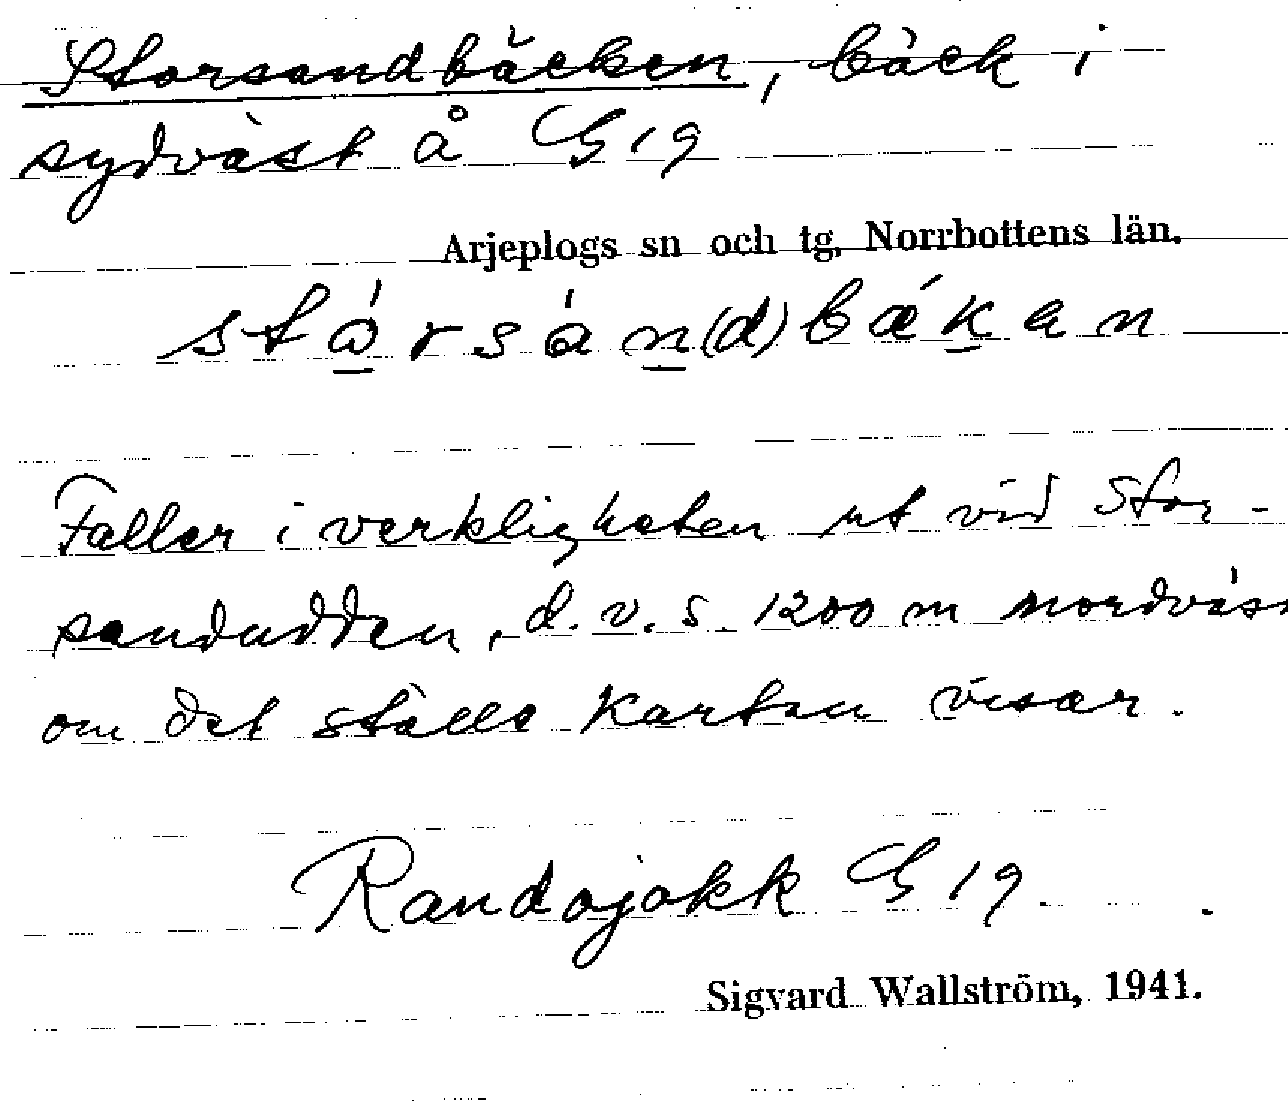 Storsandbäcken, bäck i
sydväst å G 19
Arjeplogs sn och tg, Norrbottens län.
stå̱rsán̲(d)bæ´k̲an
Faller i verkligheten ut vid Stor-
sandudden, d.v.s. 1200 m nordväst
om det ställe kartan visar.
Randojokk G 19.
Sigvard Wallström, 1941.